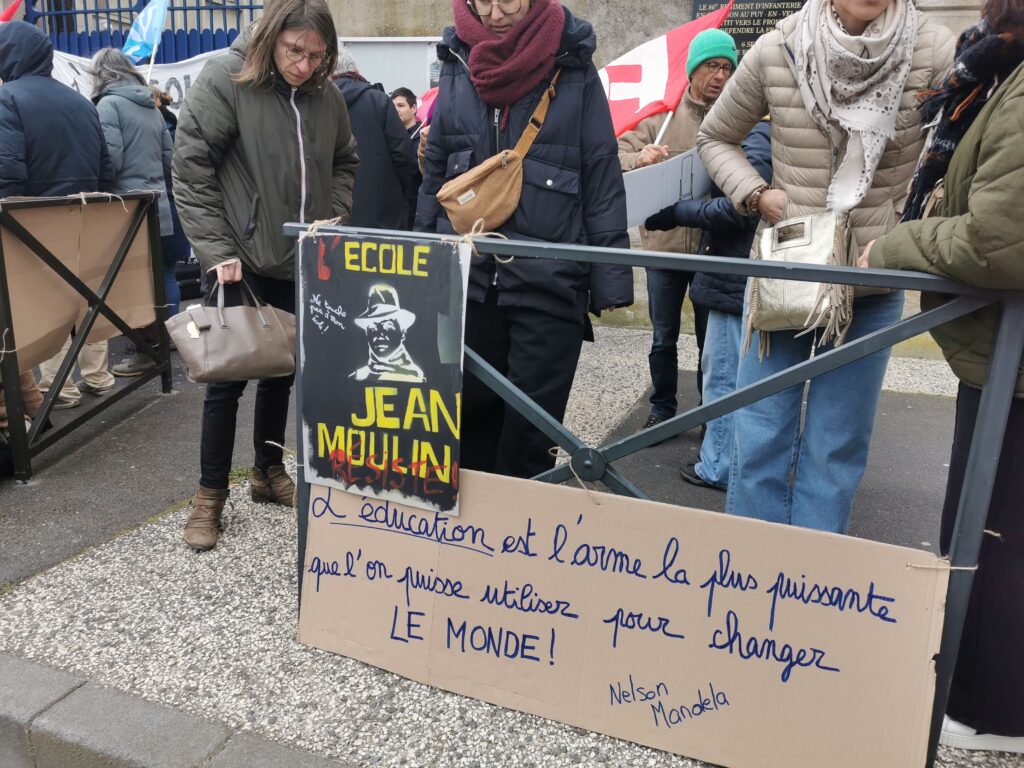 LE 86e REGIMENT D'INFANTERIE
EN GARNISON AU PUY-EN-VELAY
L' ECOLE
Ne touche
pas à mon
école!
JEAN
MOULIN
RÉSISTE!
L'éducation est l'arme la plus puissante
que l'on puisse utiliser pour changer
LE MONDE!
Nelson
Mandela